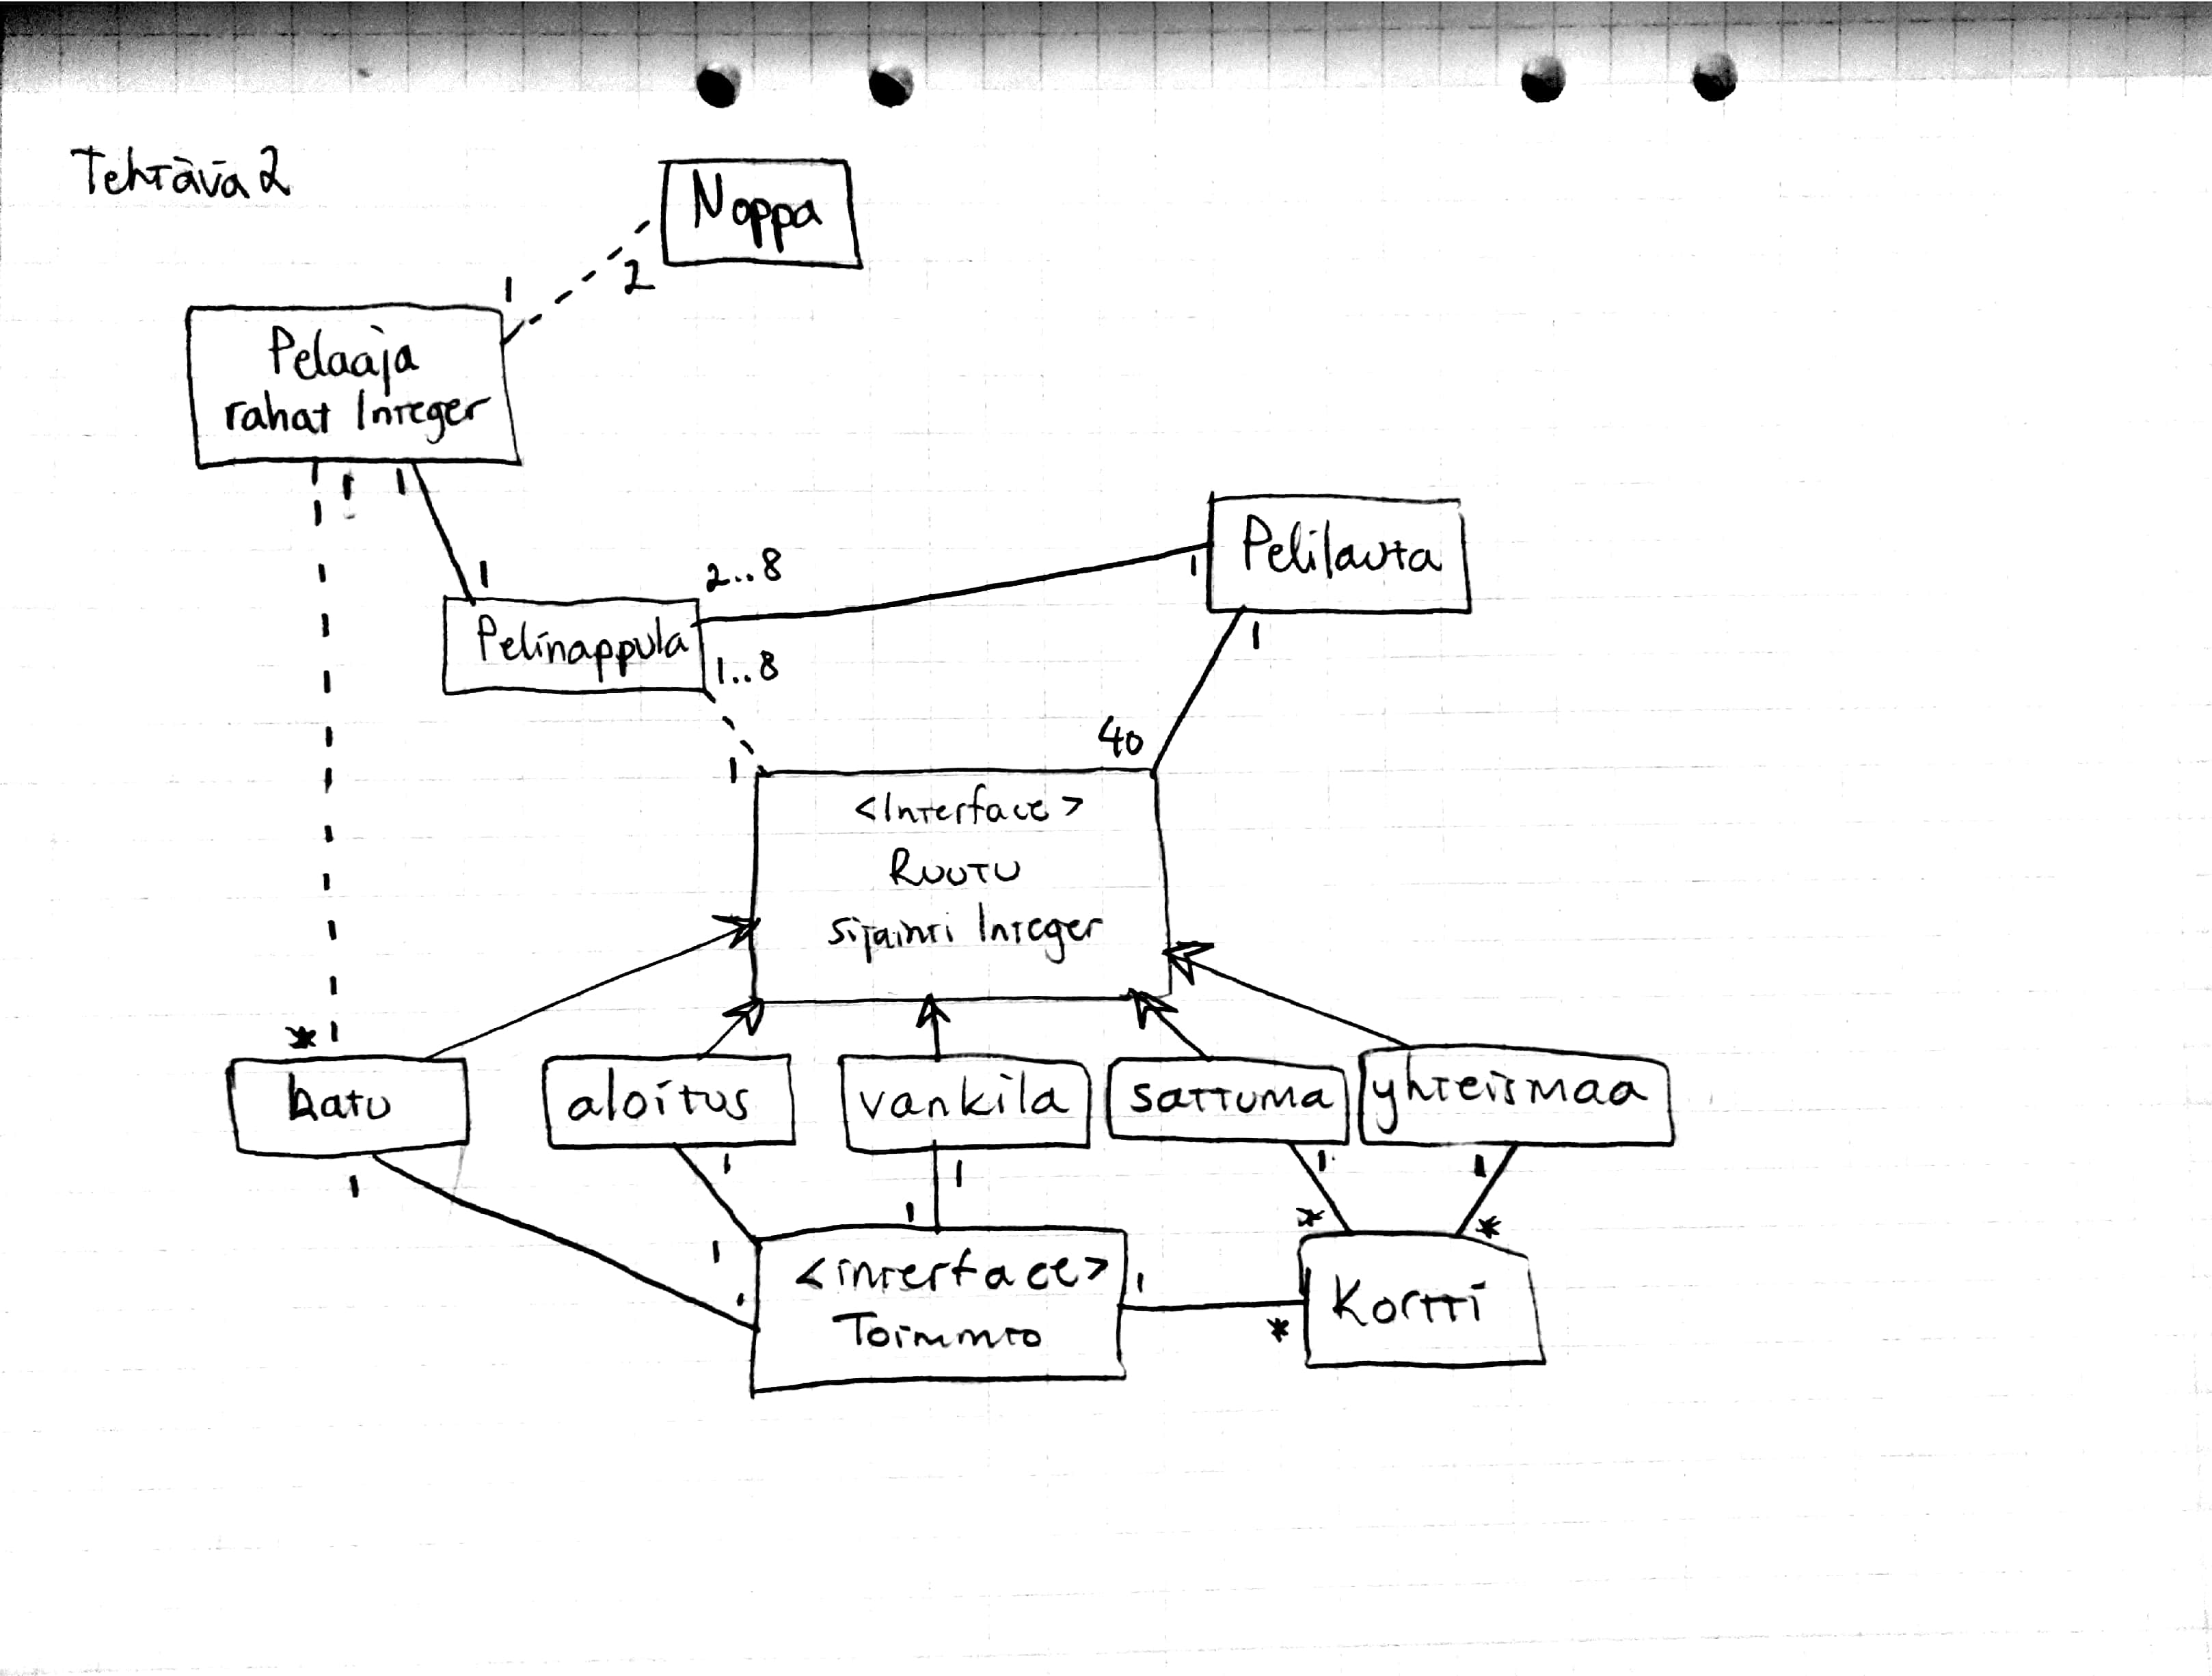 Tehtävä 2
Noppa
1
2
Pelaaja
rahat Integer
1
1
1
2...8
1
Pelilauta
Pelinappula
1...8
1
40
1
<Interface>
Ruutu
sijainti Integer
*
katu
aloitus
vankila
sattuma
yhteismaa
1
1
1
1
1
1
1
*
*
<interface>
Toiminto
1
1
*
Kortti